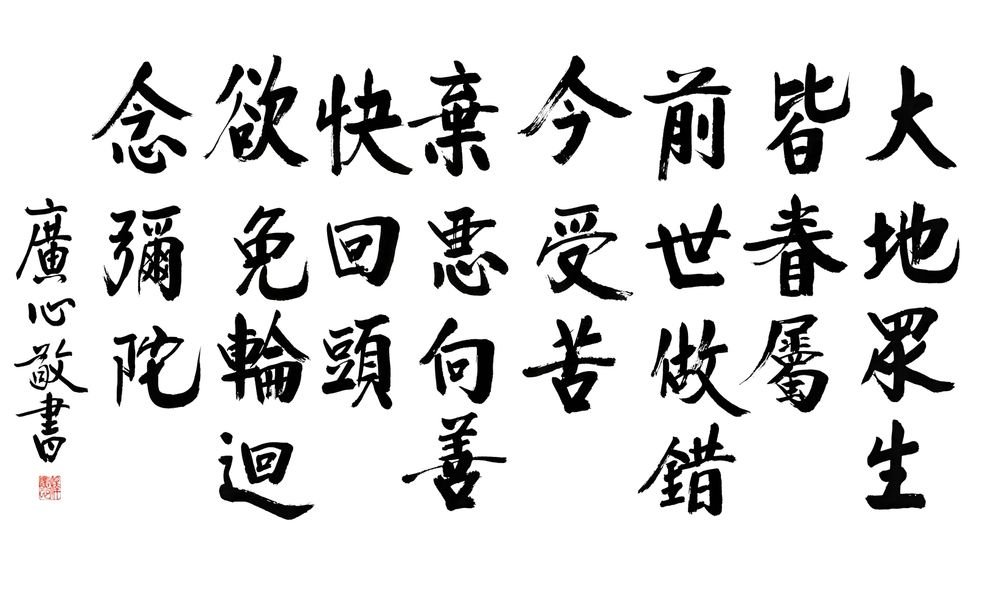 大地眾生
皆眷屬
前世做錯
今受苦
棄悪向善
快回頭
欲免輪迴
念彌陀
廣心敬書